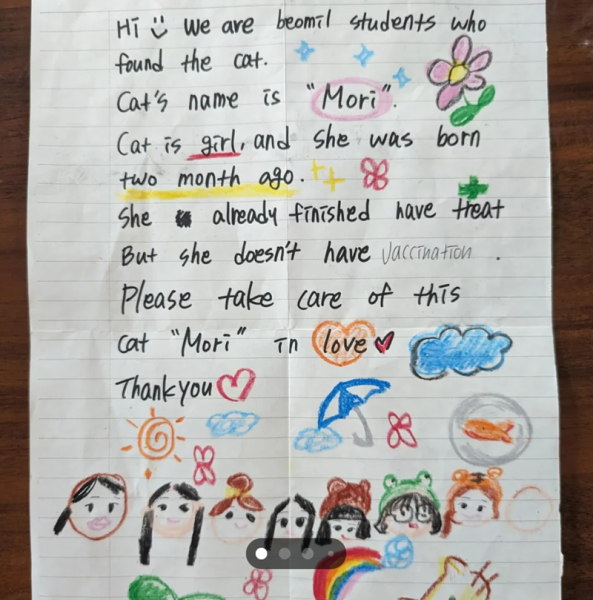 Hi we are beomil students who
found the cat.
Cat's name is "Mori".
Cat is girl, and she was born
two month ago.
She already finished have treat
But she doesn't have vaccination .
Please take care of this
cat "Mori" in love
Thank you